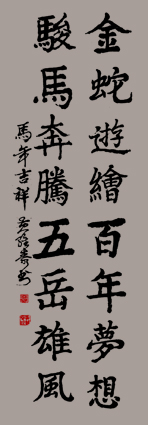 金蛇遊繪百年夢想
駿馬奔騰五岳雄風
馬年吉祥